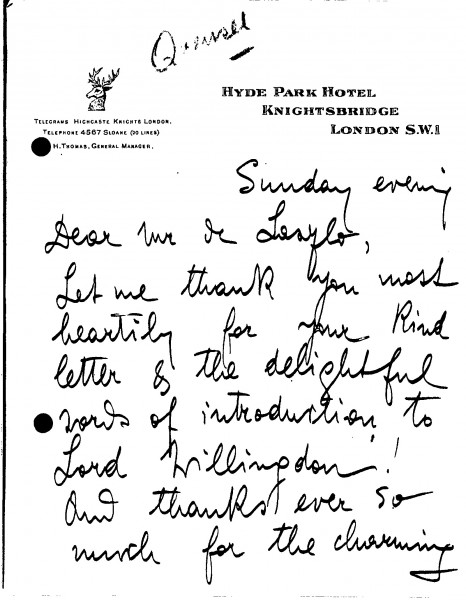 Answered
HYDE PARK HOTEL
KNIGHTSBRIDGE
LONDON S.W.1
TELEGRAMS HIGHCASTE KNIGHTS LONDON.
TELEPHONE 4567 SLOANE (20 LINES)
H. THOMAS, GENERAL MANAGER.
Sunday evening
Dear Mr de Laszlo,
Let me thank you most
heartily for your kind
letter & the delightful
words of introduction to
Lord Willingdon!
And thanks ever so
much for the charming